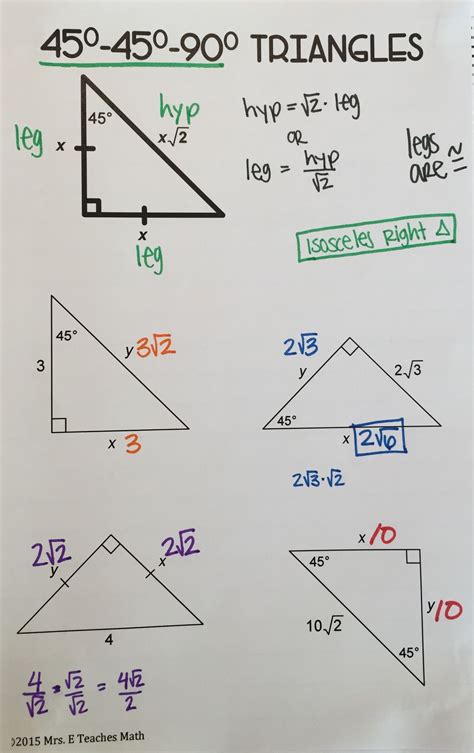 45º-45º-90º TRIANGLES
45°
leg x
hyp
x√2
x
leg
hyp = √2 · leg
OR
leg = hyp/√2
legs are ≅
Isosceles Right △
45°
3
y 3√2
x 3
2√3
y
2√3
45°
x 2√6
2√3·√2
2√2
y
x
2√2
4
4/√2 · √2/√2 = 4√2/2
x 10
45°
10√2
y 10
45°
©2015 Mrs. E Teaches Math